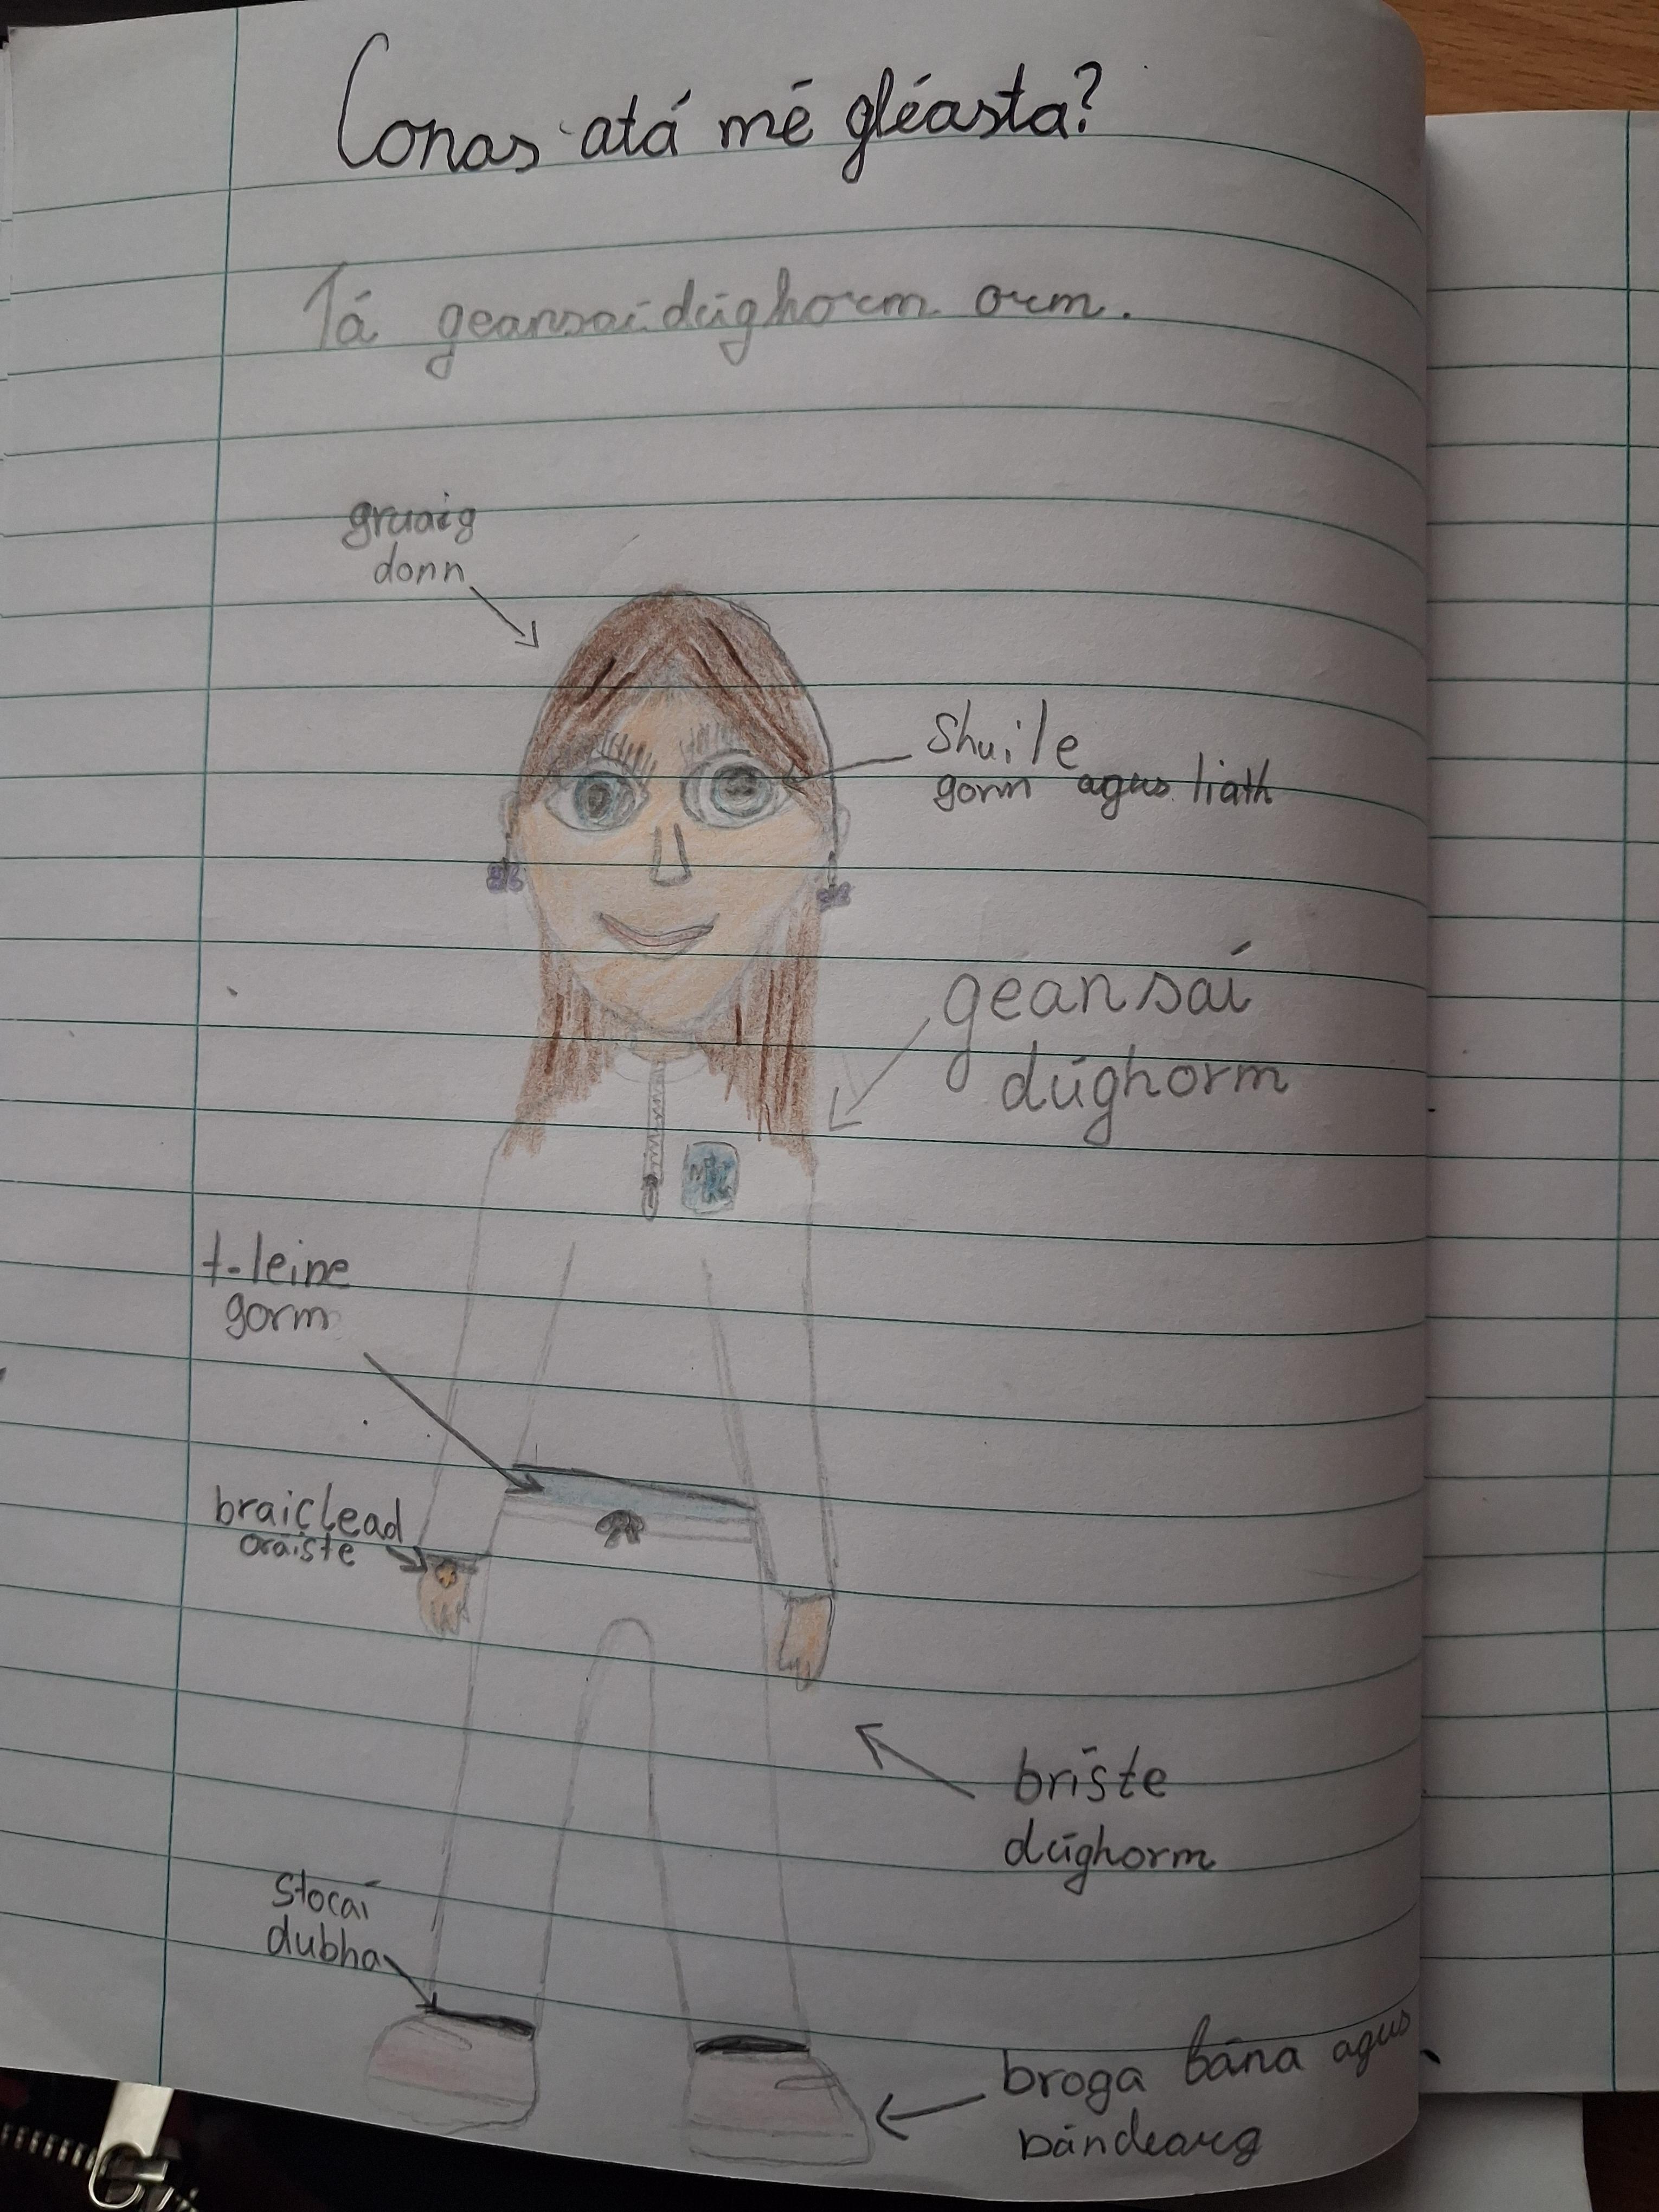 Conas atá mé gléasta?
Tá geansaí dúghorm orm.
gruaig
donn
Shuile
gorm agus liath
géansaí
dúghorm
t-leine
gorm
braiclead
oráiste
bríste
dúghorm
Stocaí
dubha
broga bána agus
bándearg